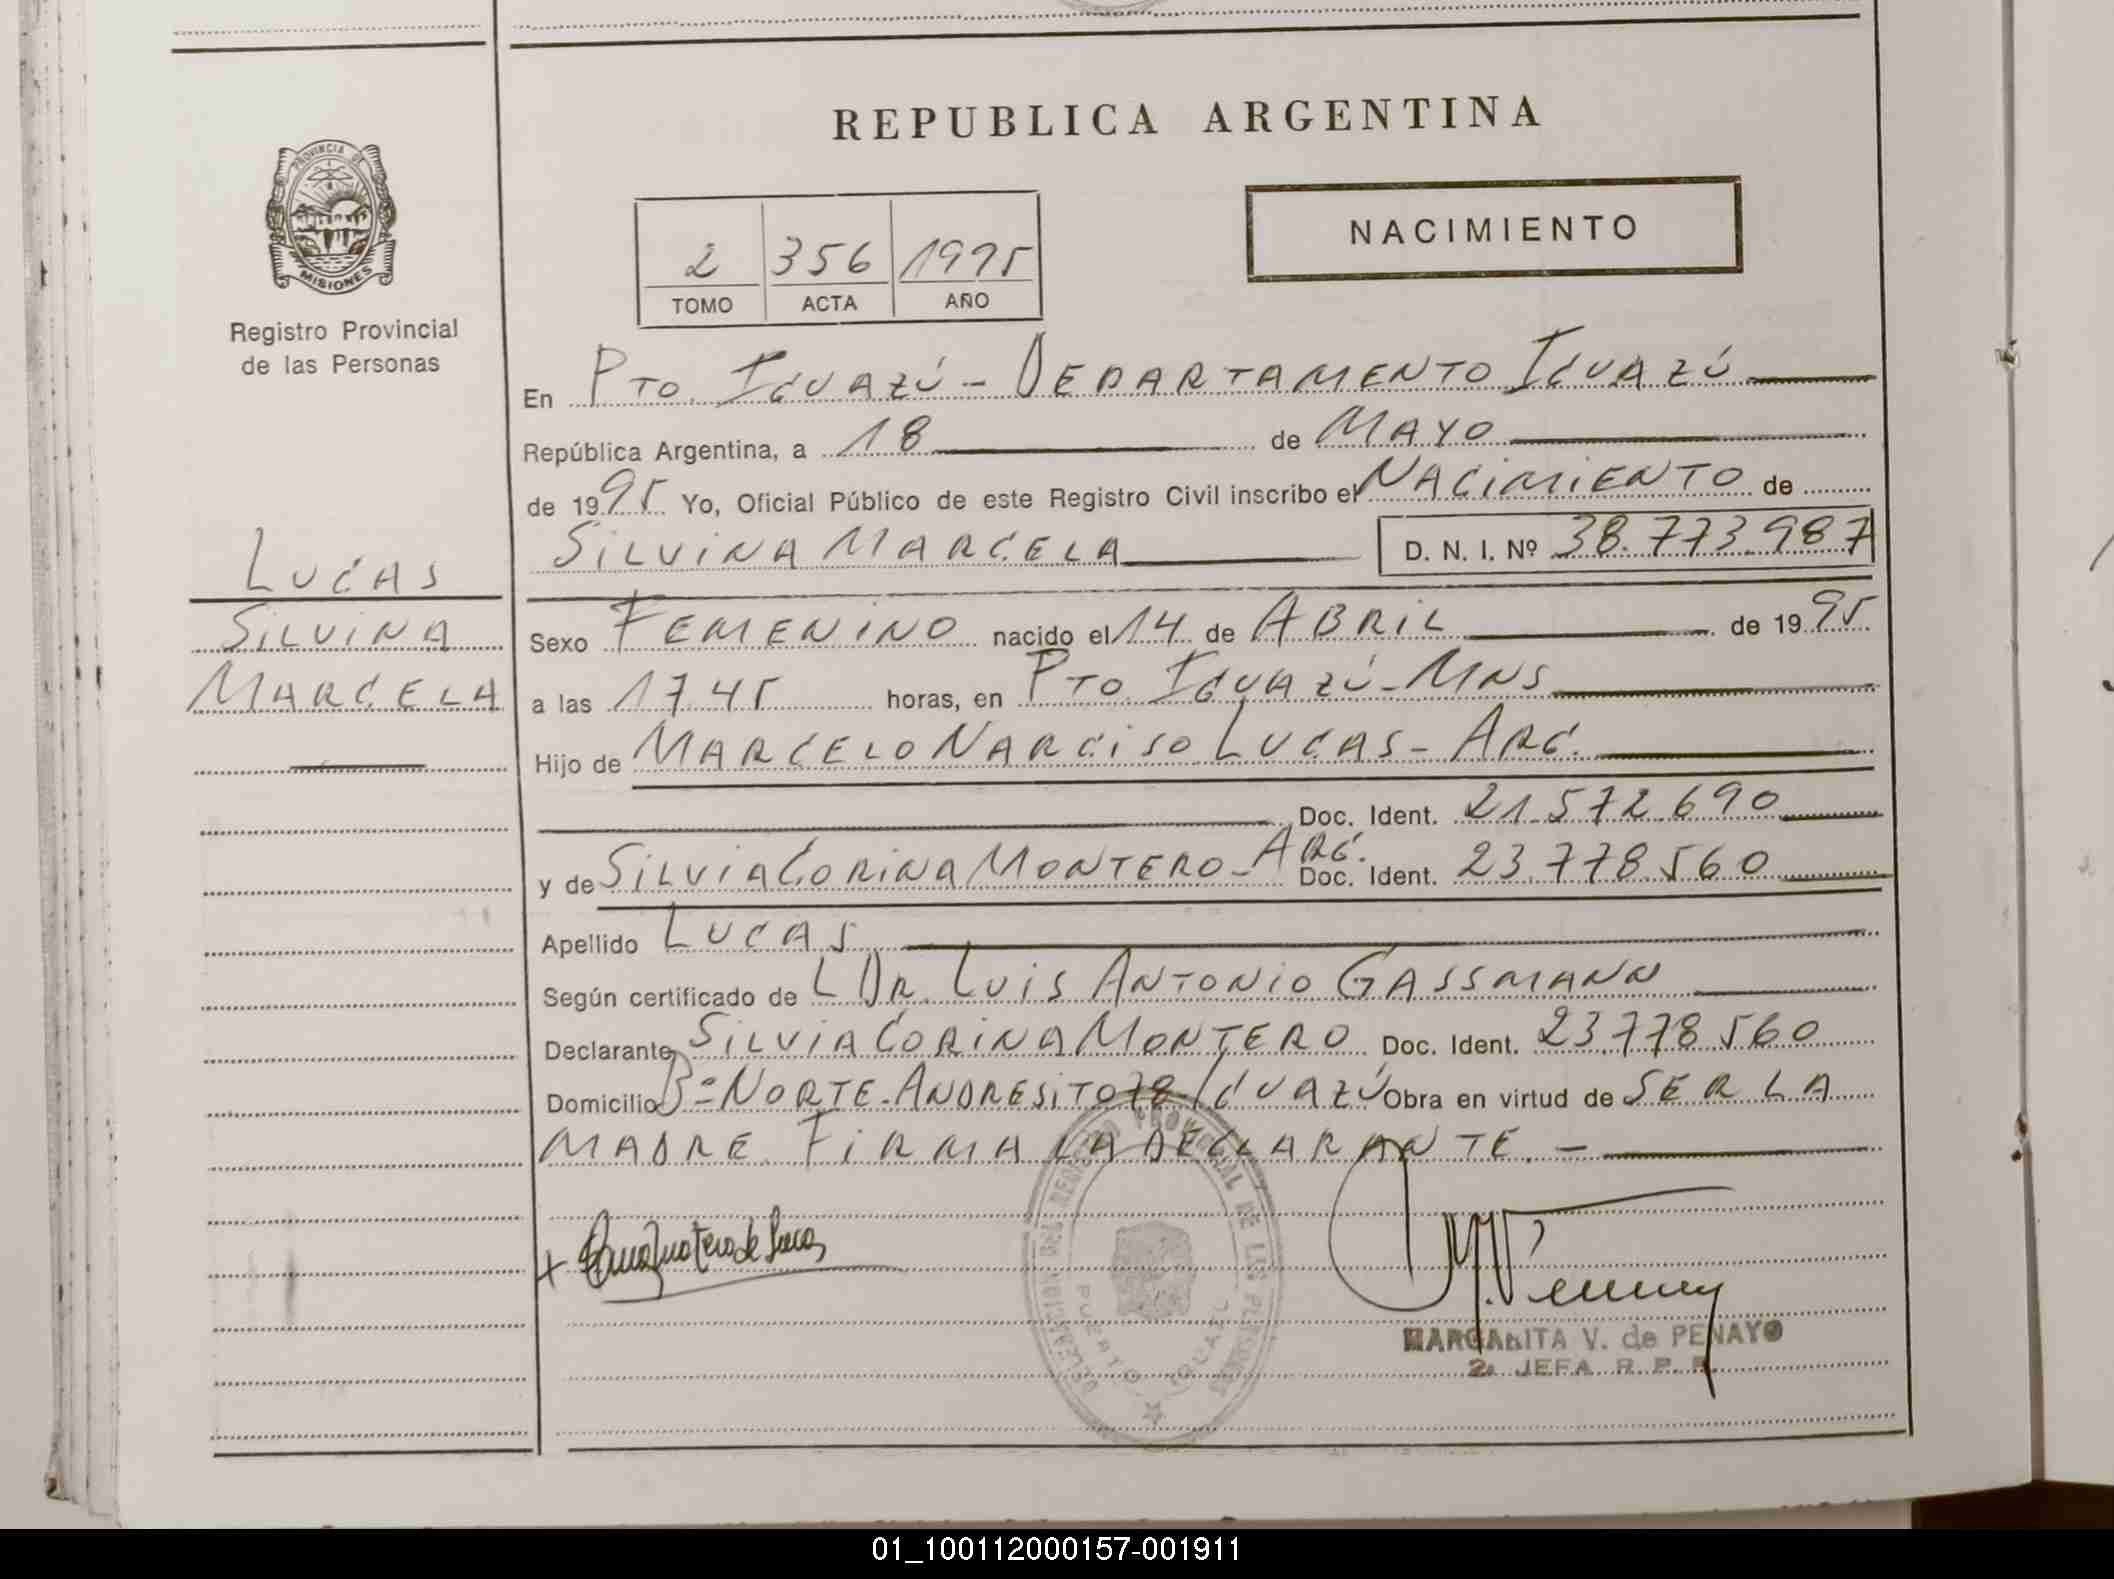 REPUBLICA ARGENTINA
PROVINCIA DE
MISIONES
Registro Provincial
de las Personas
NACIMIENTO
2 356 1995
TOMO ACTA AÑO
En PTO. IGUAZÚ - DEPARTAMENTO IGUAZÚ
República Argentina, a 18 de MAYO
de 1995 Yo, Oficial Público de este Registro Civil inscribo el NACIMIENTO de
SILVINA MARCELA D. N. I. Nº 38.773.987
LUCAS
SILVINA
MARCELA
Sexo FEMENINO nacido el 14 de ABRIL de 1995
a las 17.45 horas, en PTO. IGUAZÚ - MNS
Hijo de MARCELO NARCISO LUCAS - ARG.
Doc. Ident. 21.572.690
y de SILVIA CORINA MONTERO - ARG. Doc. Ident. 23.778.560
Apellido LUCAS
Según certificado de L DR. LUIS ANTONIO GASSMANN
Declarante SILVIA CORINA MONTERO Doc. Ident. 23.778.560
Domicilio Bº NORTE - ANDRESITO 78 - IGUAZÚ Obra en virtud de SER LA
MADRE. FIRMA LA DECLARANTE. -
DELEGACION DEL REGISTRO PROVINCIAL DE LAS PERSONAS
PUERTO IGUAZU
MARGARITA V. de PENAYO
2a JEFA R. P. P.
01_100112000157-001911